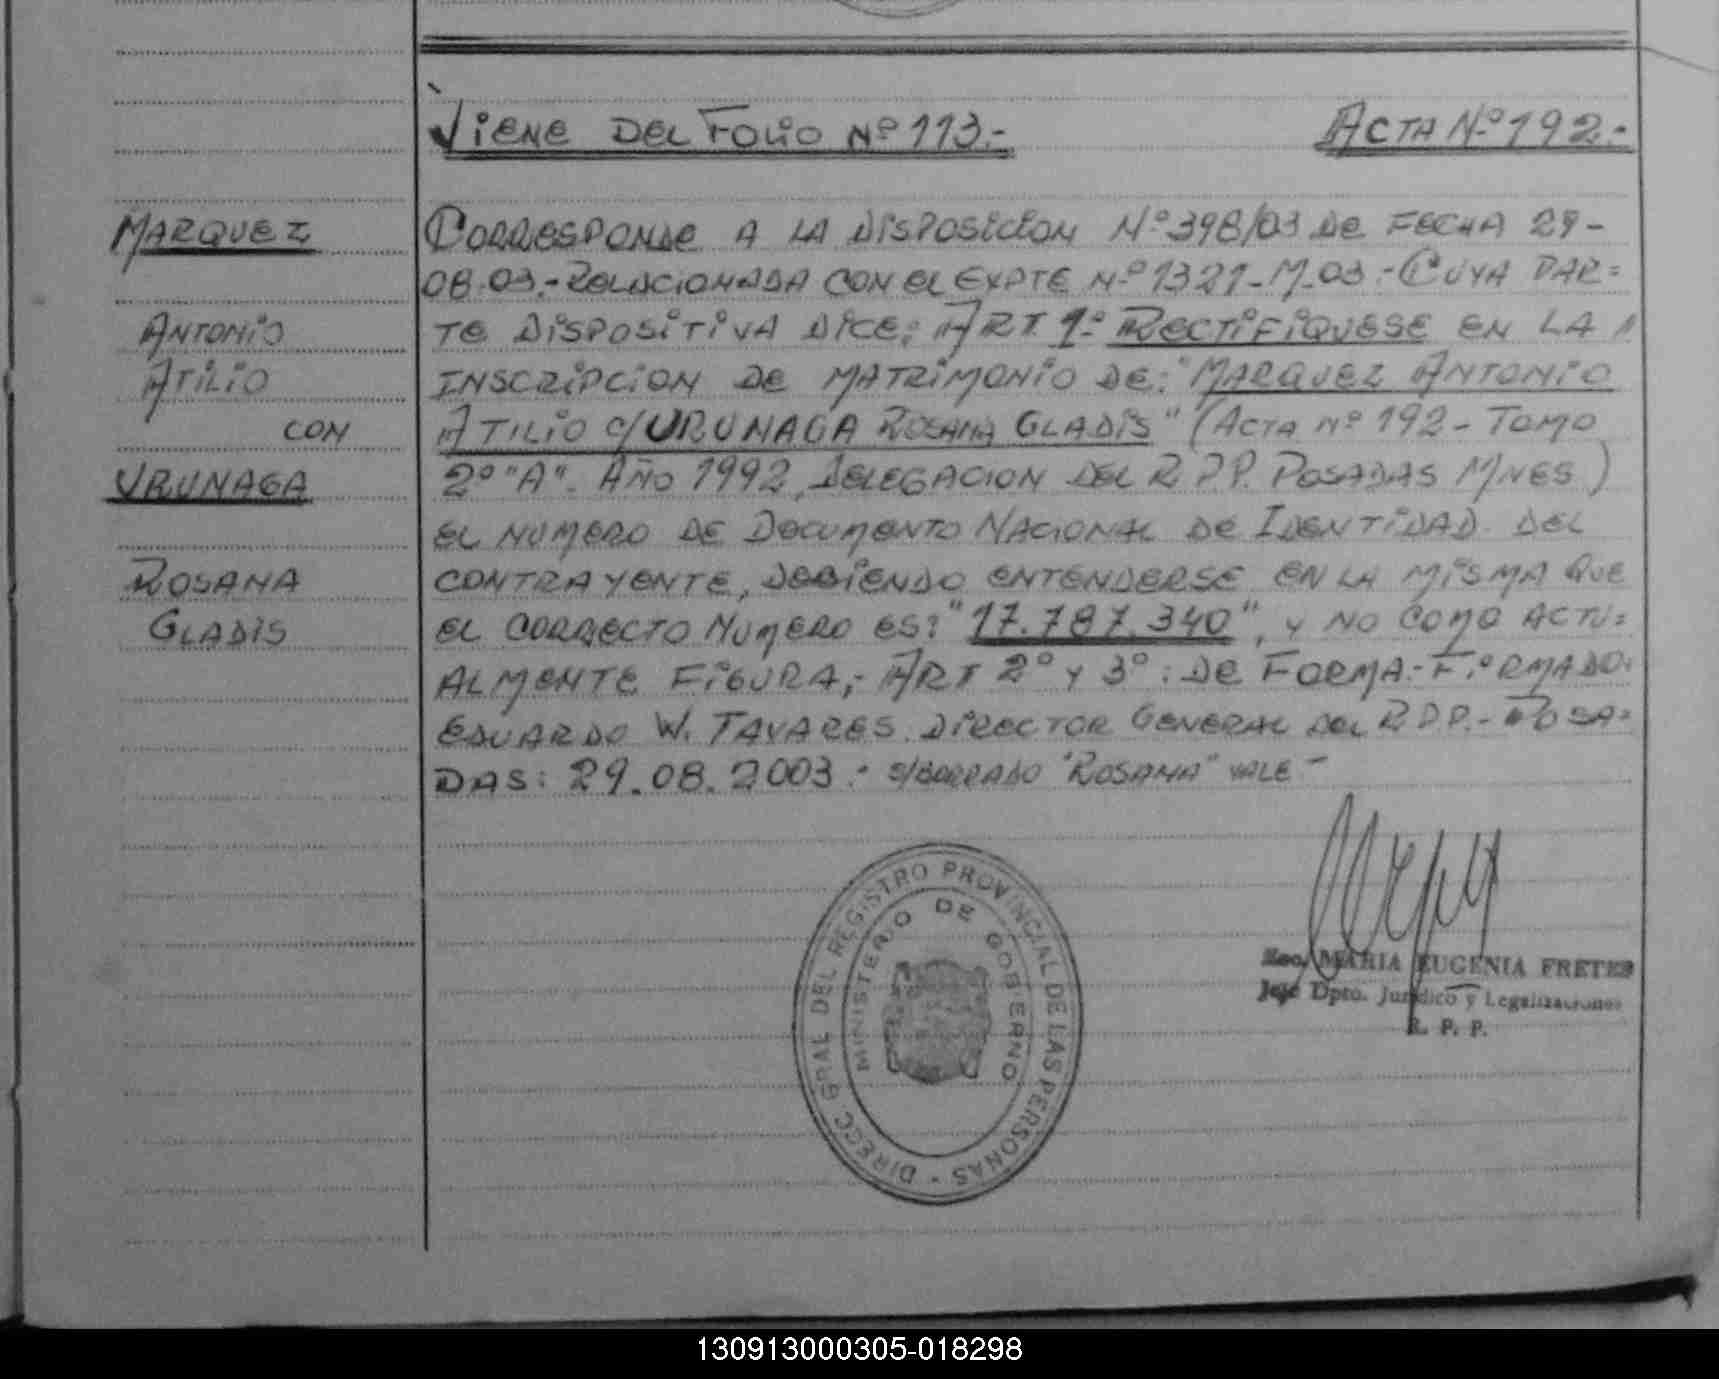 Viene del Folio Nº 113.-
Acta Nº 192.-
MARQUEZ
ANTONIO
ATILIO
CON
URUNAGA
ROSANA
GLADIS
CORRESPONDE A LA DISPOSICION Nº 398/03 DE FECHA 29-
08-03.- RELACIONADA CON EL EXPTE Nº 1321-M-03.- CUYA PAR=
TE DISPOSITIVA DICE; ART 1º: RECTIFIQUESE EN LA
INSCRIPCION DE MATRIMONIO DE: "MARQUEZ ANTONIO
ATILIO C/URUNAGA ROSANA GLADIS" (ACTA Nº 192 - TOMO
2º "A". AÑO 1992, DELEGACION DEL R.P.P. POSADAS MNES)
EL NUMERO DE DOCUMENTO NACIONAL DE IDENTIDAD DEL
CONTRAYENTE, DEBIENDO ENTENDERSE EN LA MISMA QUE
EL CORRECTO NUMERO ES: "17.787.340", Y NO COMO ACTU=
ALMENTE FIGURA;- ART 2º Y 3º: DE FORMA.- FIRMADO:
EDUARDO W. TAVARES. DIRECTOR GENERAL DEL R.P.P.- POSA=
DAS: 29.08.2003.- S/BORRADO "ROSANA" VALE.-
DIRECC GRAL DEL REGISTRO PROVINCIAL DE LAS PERSONAS -
MINISTERIO DE GOBIERNO
Esc. MARIA EUGENIA FRETES
Jefe Dpto. Jurídico y Legalizaciones
R. P. P.
130913000305-018298